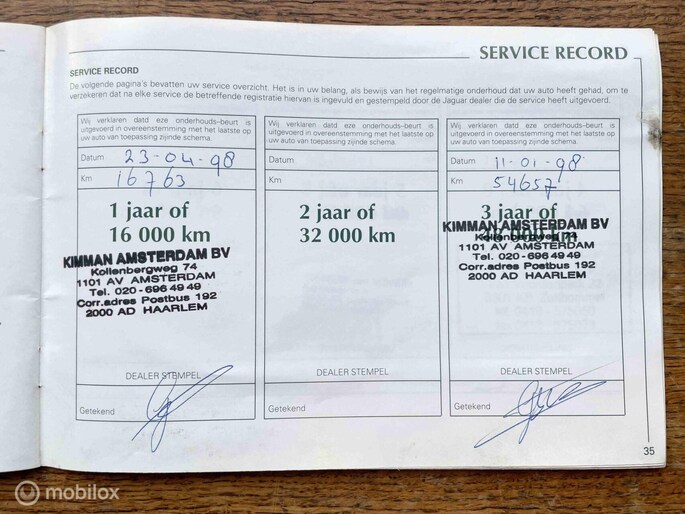 SERVICE RECORD
SERVICE RECORD
De volgende pagina's bevatten uw service overzicht. Het is in uw belang, als bewijs van het regelmatige onderhoud dat uw auto heeft gehad, om te
verzekeren dat na elke service de betreffende registratie hiervan is ingevuld en gestempeld door de Jaguar dealer die de service heeft uitgevoerd.
Wij verklaren datd eze onderhouds-beurt is
uitgevoerd in overeenstemming met het laatste op
uw auto van toepassing zijnde schema.
Datum 23-04-98
Km 16763
1 jaar of
16 000 km
KIMMAN AMSTERDAM BV
Kollenbergweg 74
1101 AV AMSTERDAM
Tel. 020-696 49 49
Corr.adres Postbus 192
2000 AD HAARLEM
DEALER STEMPEL
Getekend
Wij verklaren datd eze onderhouds-beurt is
uitgevoerd in overeenstemming met het laatste op
uw auto van toepassing zijnde schema.
Datum
Km
2 jaar of
32 000 km
DEALER STEMPEL
Getekend
Wij verklaren datd eze onderhouds-beurt is
uitgevoerd in overeenstemming met het laatste op
uw auto van toepassing zijnde schema.
Datum 11-01-98
Km 54657
3 jaar of
000 km
KIMMAN AMSTERDAM BV
Kollenbergweg 74
1101 AV AMSTERDAM
Tel. 020-696 49 49
Corr.adres Postbus 192
2000 AD HAARLEM
DEALER STEMPEL
Getekend
35
mobilox